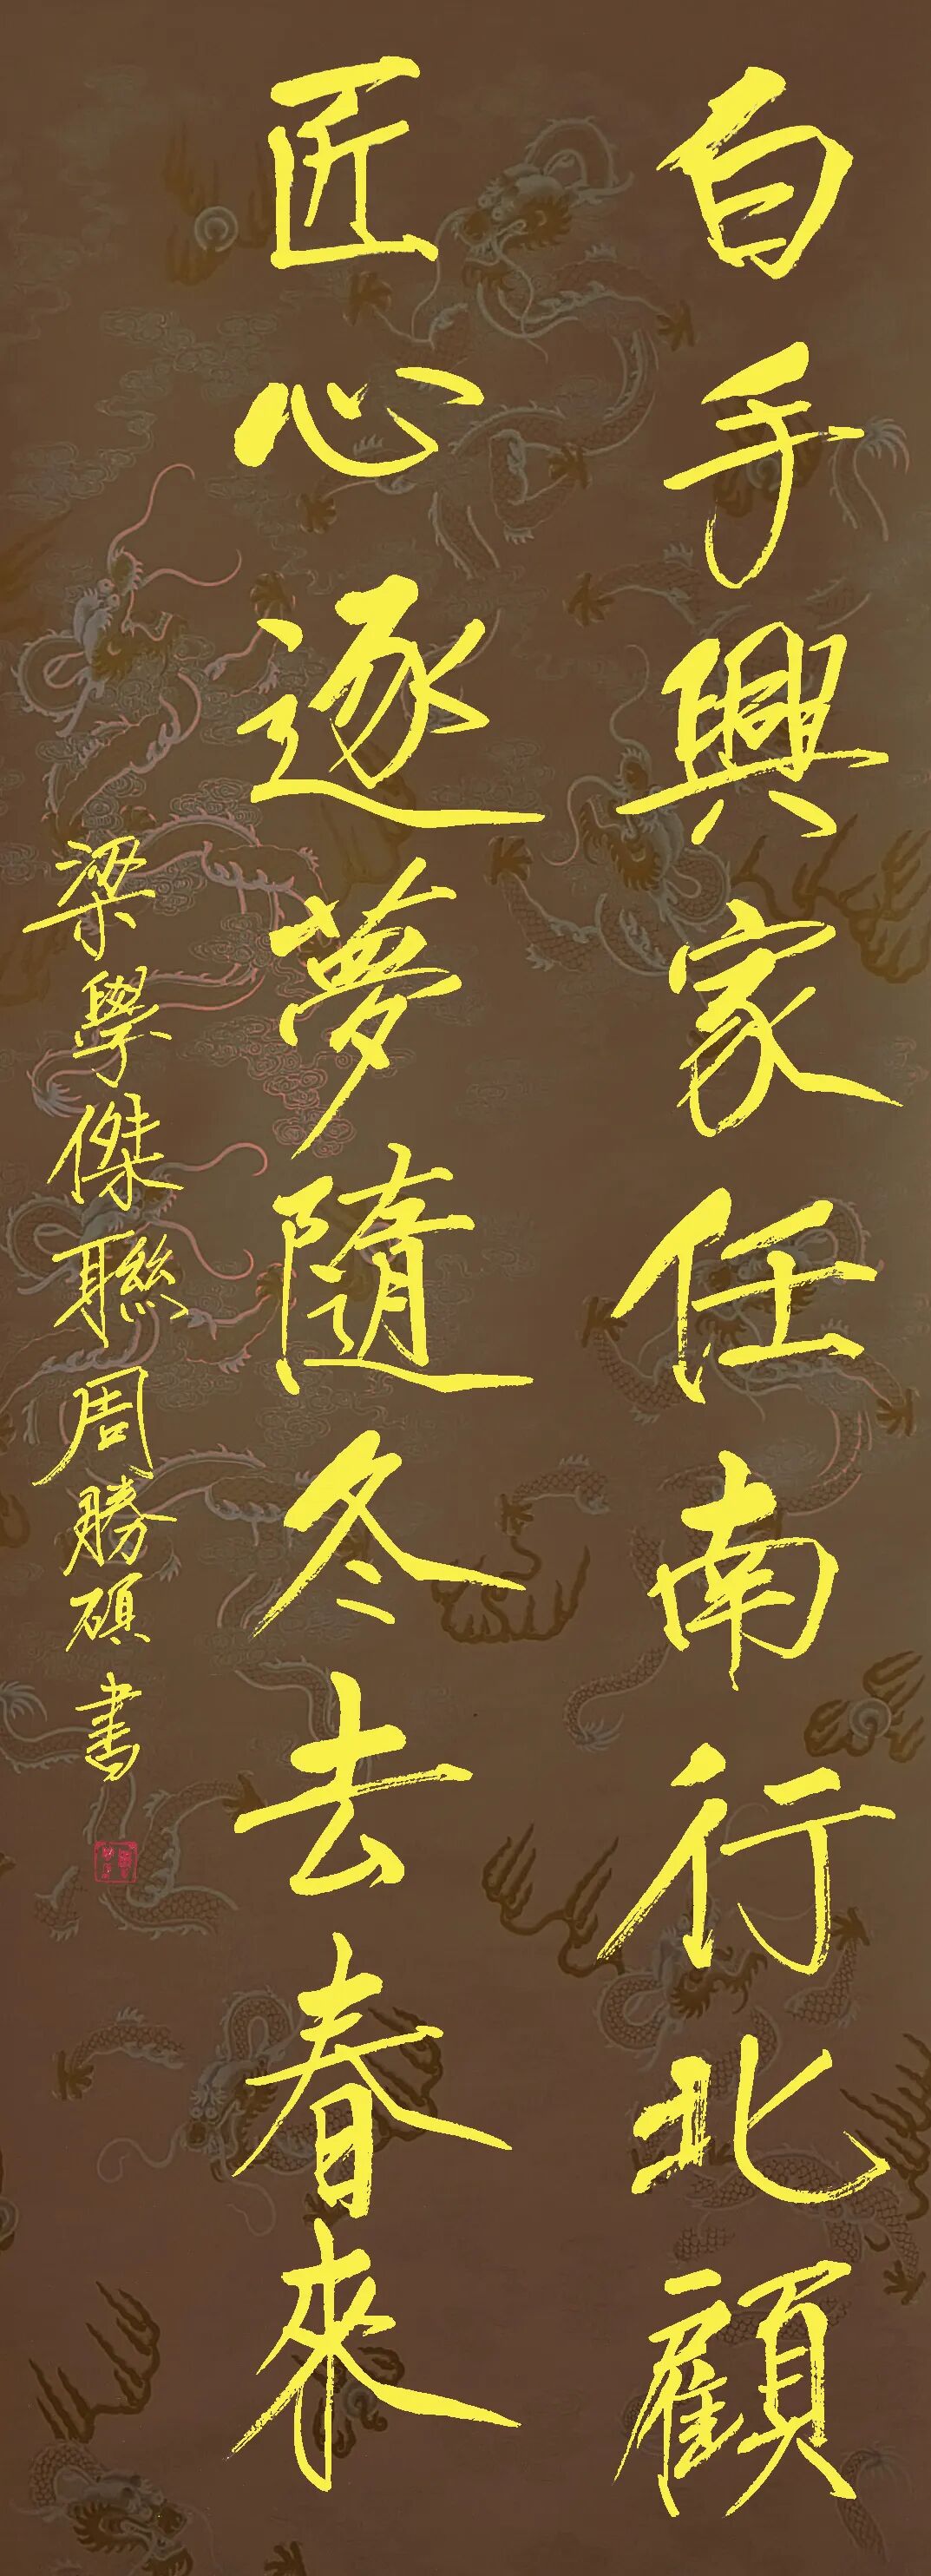 白手興家任南行北顧
匠心逐夢隨冬去春來
梁學傑聯周勝碩書